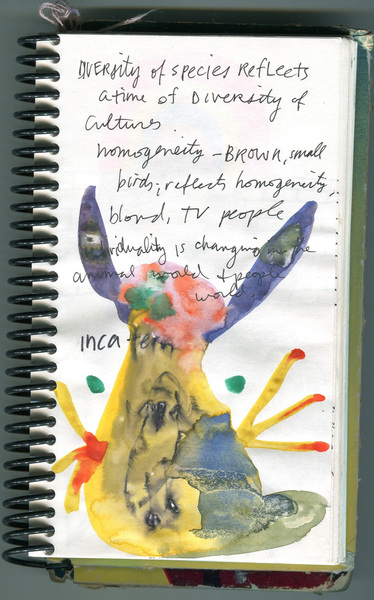 DIVERSITY of species Reflects
a time of DIVERSITY of
Cultures.
homogeneity – BROWN, small
birds; reflects homogeneity,
blond, TV people
is changing in the
animal world + people
world.
inca-tern